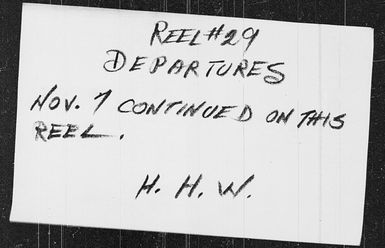 REEL #29
DEPARTURES
NOV. 7 CONTINUED ON THIS
REEL.
H. H. W.